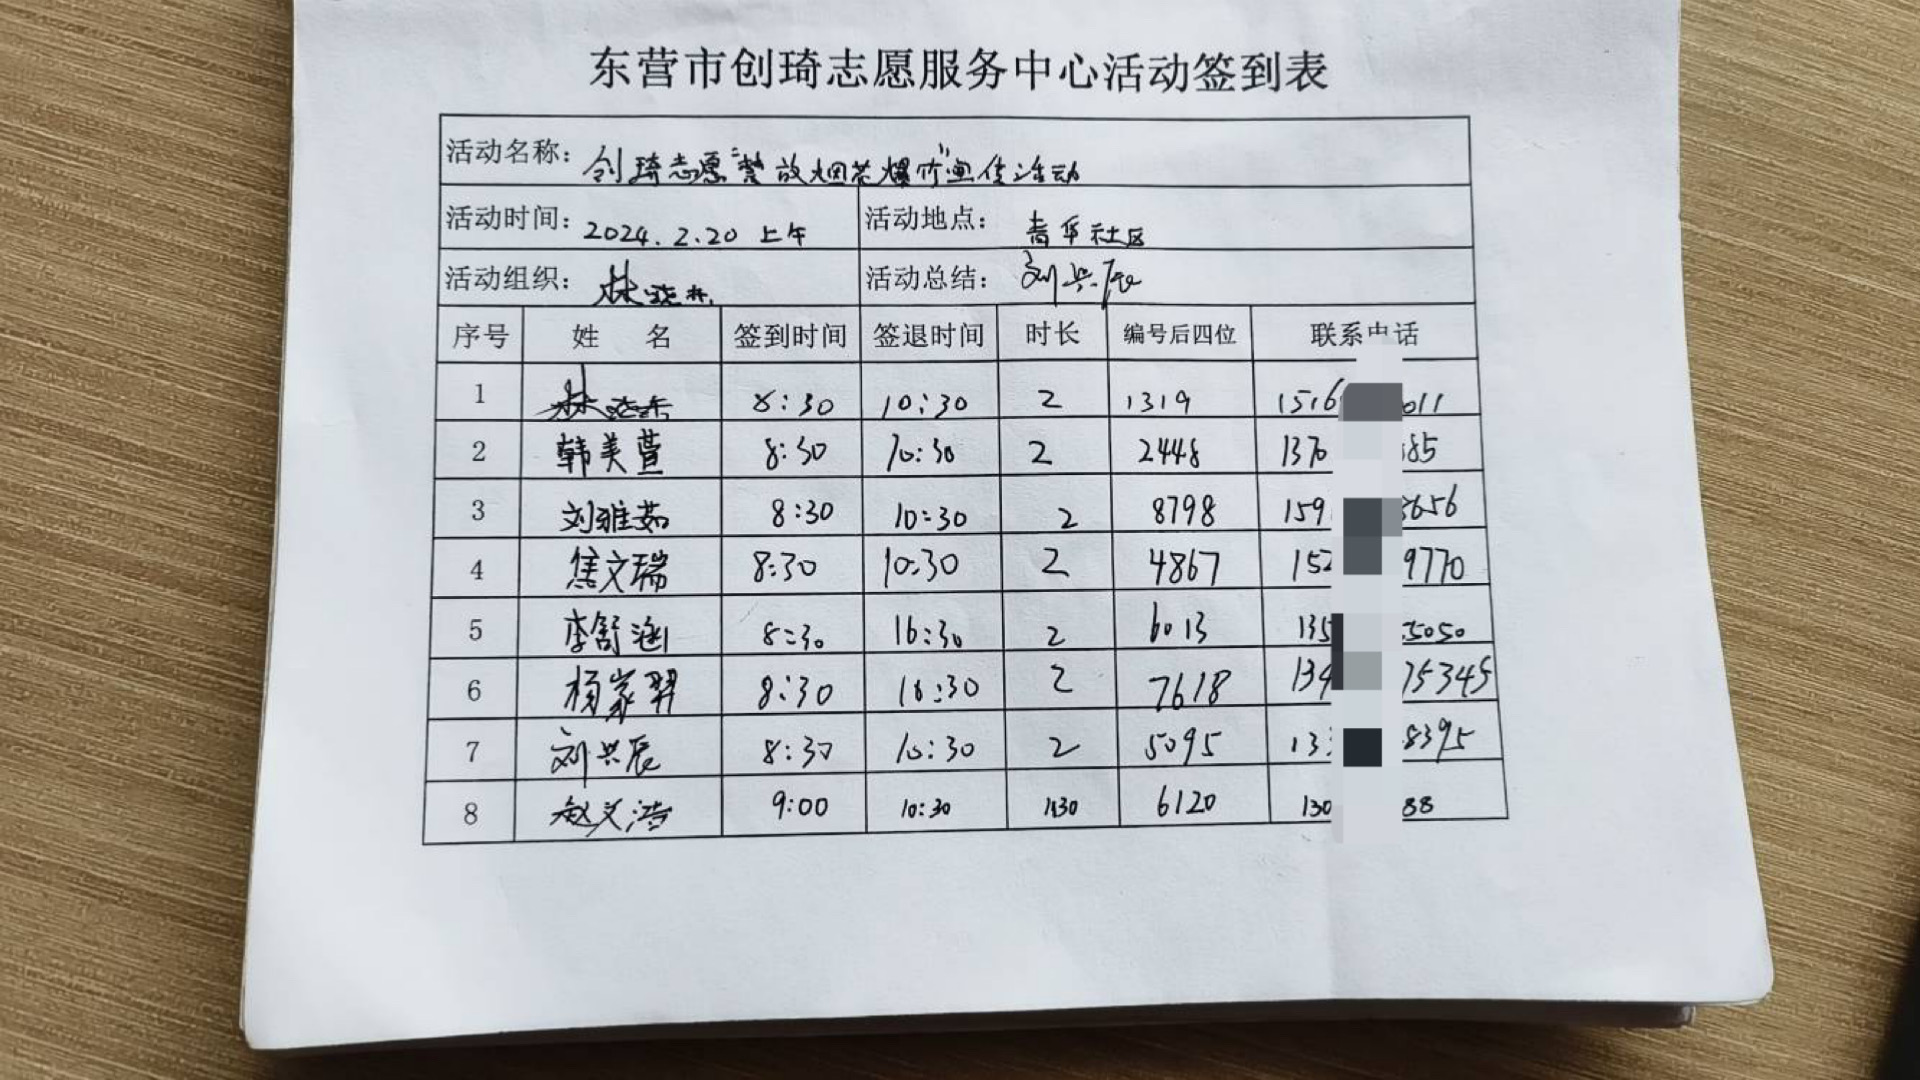 东营市创琦志愿服务中心活动签到表
活动名称: 创琦志愿"禁放烟花爆竹"宣传活动
活动时间: 2024.2.20 上午 活动地点: 青华社区
活动组织: 林 活动总结: 刘兴辰
序号 姓 名 签到时间 签退时间 时长 编号后四位 联系电话
1 林 8:30 10:30 2 1319 1516 011
2 韩美萱 8:30 10:30 2 2448 1370 85
3 刘雅茹 8:30 10:30 2 8798 159 8656
4 焦文瑞 8:30 10:30 2 4867 152 9770
5 李舒涵 8:30 10:30 2 6013 135 5050
6 杨家羿 8:30 10:30 2 7618 134 75345
7 刘兴辰 8:30 10:30 2 5095 133 8395
8 赵义浩 9:00 10:30 1:30 6120 130 88